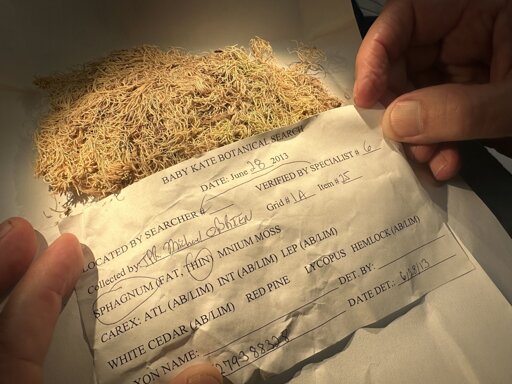 BABY KATE BOTANICAL SEARCH
DATE: June 28 2013
LOCATED BY SEARCHER VERIFIED BY SPECIALIST # 6
Collected by TPR Michael O'BRIEN Grid # 1A Item # 25
SPHAGNUM (FAT, THIN) MNIUM MOSS
CAREX: ATL (AB/LIM) INT (AB/LIM) LEP (AB/LIM)
WHITE CEDAR (AB/LIM) RED PINE LYCOPUS HEMLOCK (AB/LIM)
XON NAME: DET. BY:
DATE DET.: